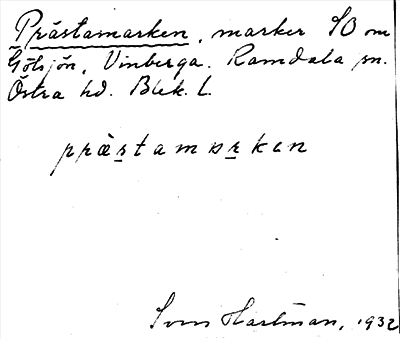 Prästamarken, marker SO om
Gölsjön, Vinberga. Ramdala sn.
Östra hd. Blek. l.
præstamɒrkɛn
Sven Hartman, 1932